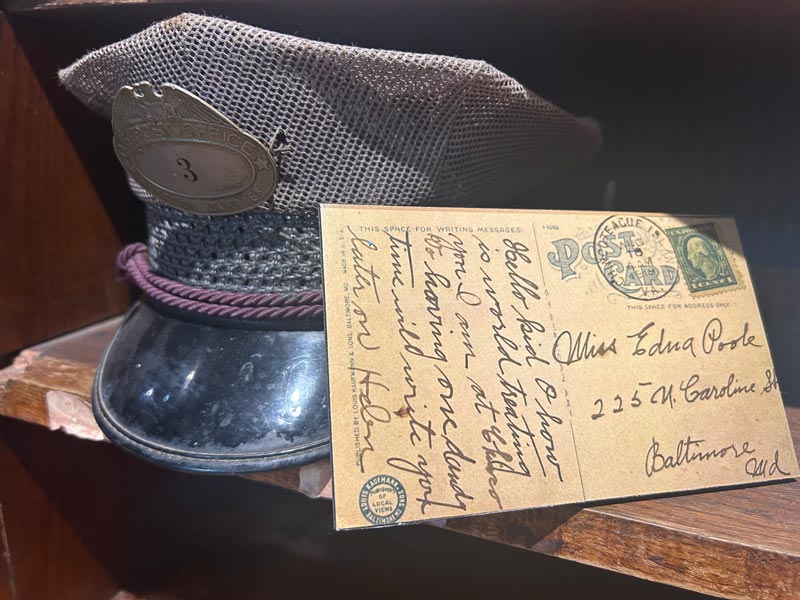 POST OFFICE
3
THIS SPACE FOR WRITING MESSAGES
POST CARD
THIS SPACE FOR ADDRESS ONLY
MADE IN U.S.A.
PUBLISHED BY LOUIS KAUFMANN & SONS, BALTIMORE, MD.
Hello kid O how
is world treating
you I am at Chinco
to having one dandy
time will write you
later on Helen
Miss Edna Poole
225 N. Caroline St
Baltimore
Md
LOUIS KAUFMANN & SONS
PUBLISHERS
OF LOCAL
VIEWS
BALTIMORE, MD.